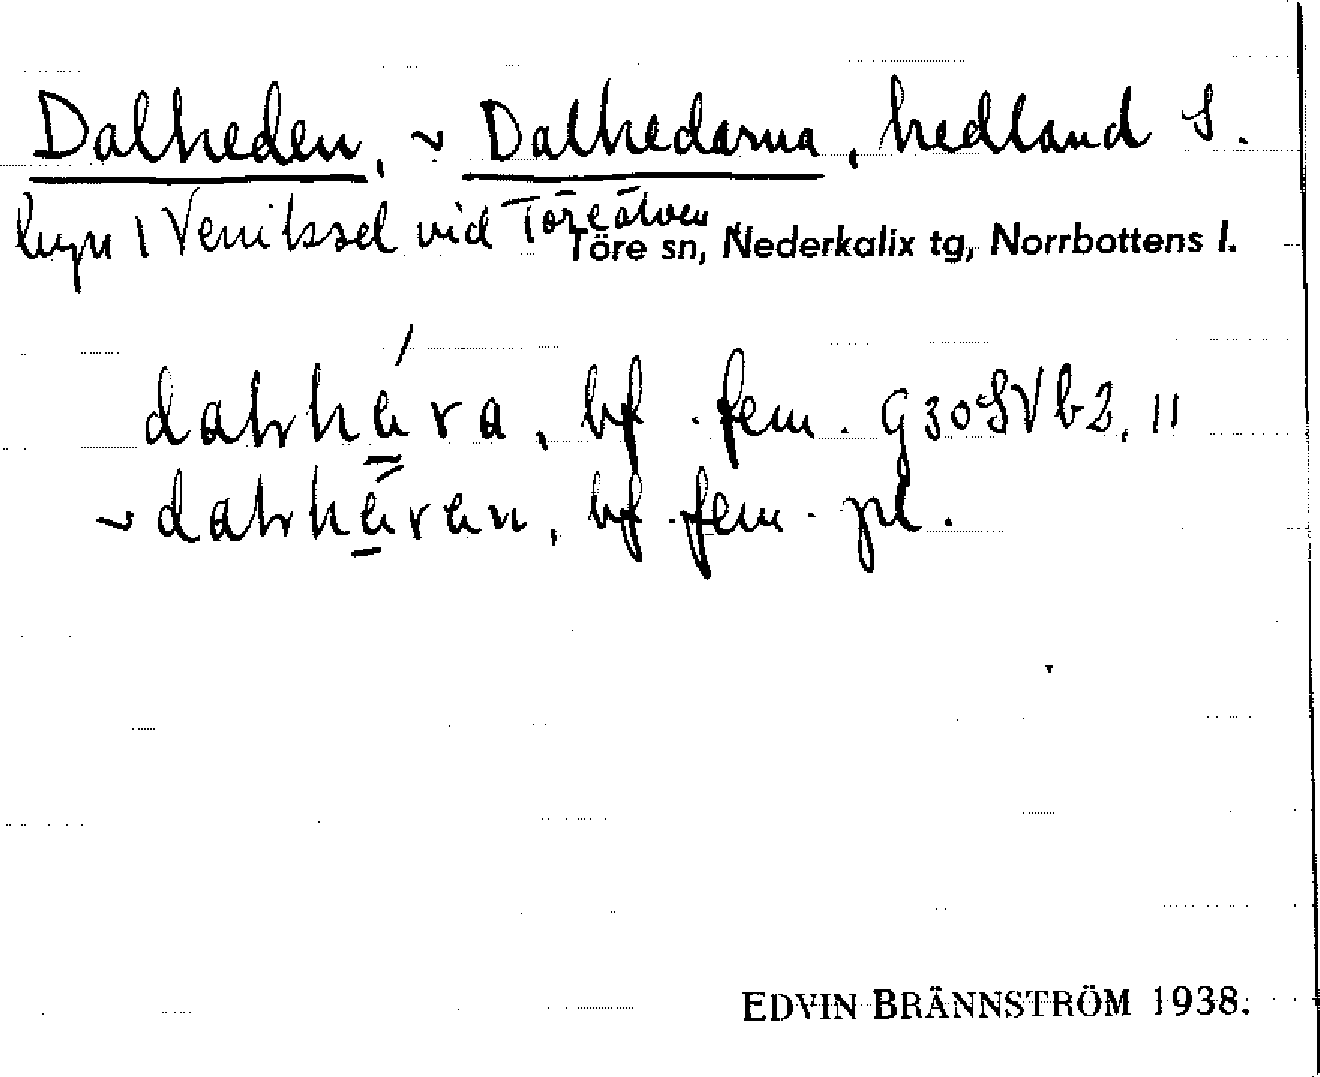 Dalheden, ~ Dalhedarna, hedland S.
byn Veniksel vid Töreälven
Töre sn, Nederkalix tg, Norrbottens l.
bf. fem. G30SVb2, 11
~ bf. fem. pl.
EDVIN BRÄNNSTRÖM 1938.